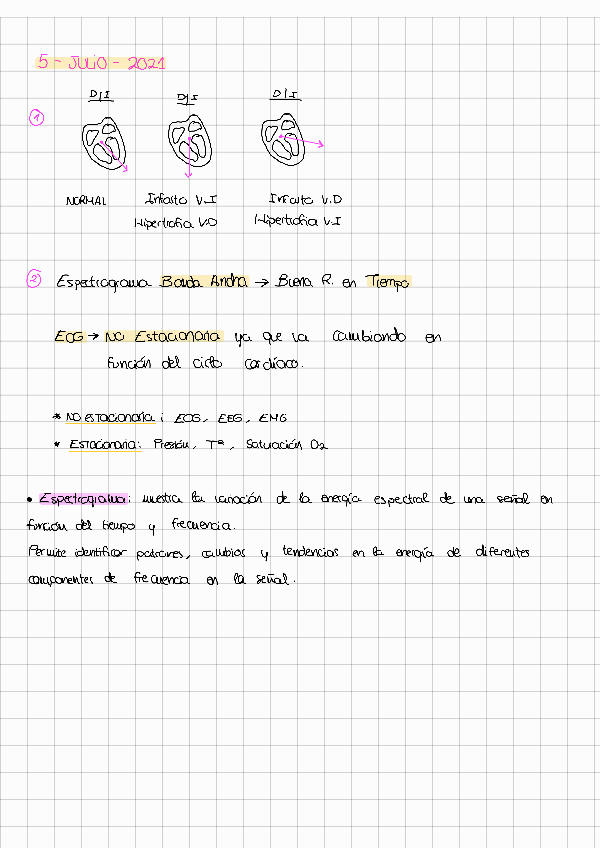 5 - JULIO - 2021
D|I D|I D|I
1
NORMAL Infarto V.I Infarto V.D
Hipertrofia V.D Hipertrofia V.I
2 Espectrograma Banda Ancha → Buena R. en Tiempo
ECG → NO Estacionaria ya que va cambiando en
función del ciclo cardíaco.
* NO estacionaria: ECG, EEG, EMG
* Estacionaria: Presión, Tª, Saturación O2
• Espectrograma: muestra la variación de la energía espectral de una señal en
función del tiempo y frecuencia.
Permite identificar patrones, cambios y tendencias en la energía de diferentes
componentes de frecuencia en la señal.